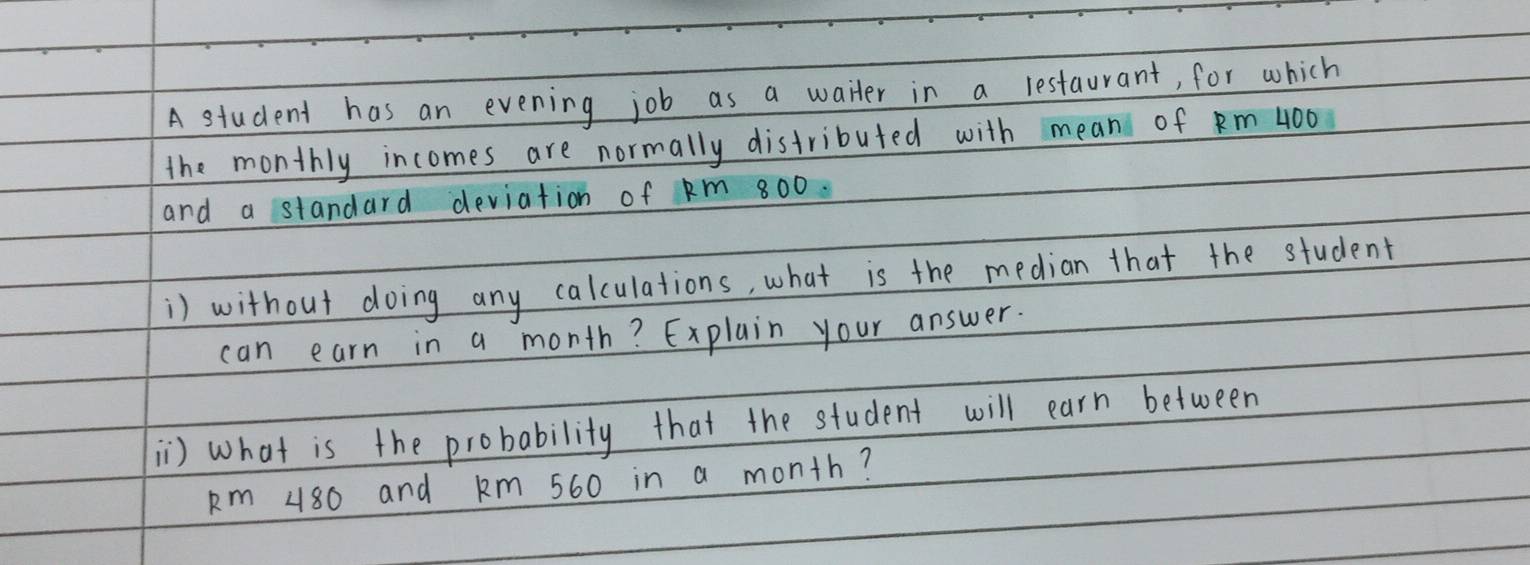 A student has an evening job as a waiter in a restaurant, for which
the monthly incomes are normally distributed with mean of RM 400
and a standard deviation of RM 800.
i) without doing any calculations, what is the median that the student
can earn in a month? Explain your answer.
ii) what is the probability that the student will earn between
RM 480 and RM 560 in a month?